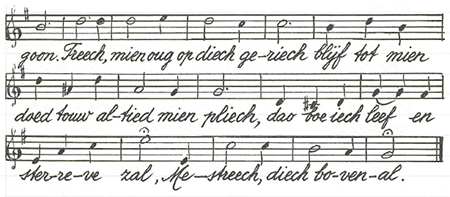 goon. Freech, mien oug op diech ge-riech blijf tot mien
doed touw al-tied mien pliech, dao boe iech leef en
ster-re-ve zal, Me-streech, diech bo-ven-al.